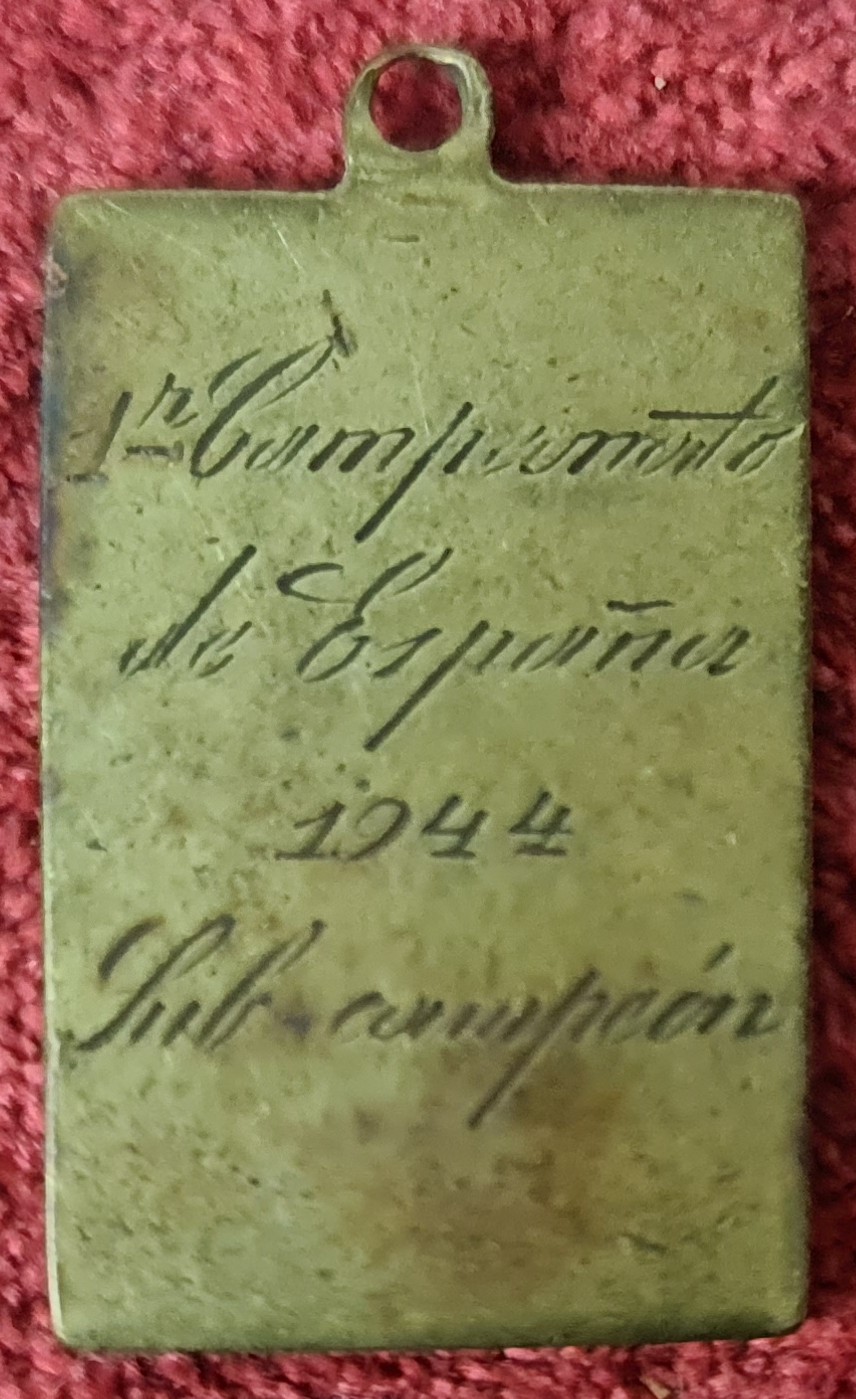 1r Campamento
de España
1944
Sub-campeón